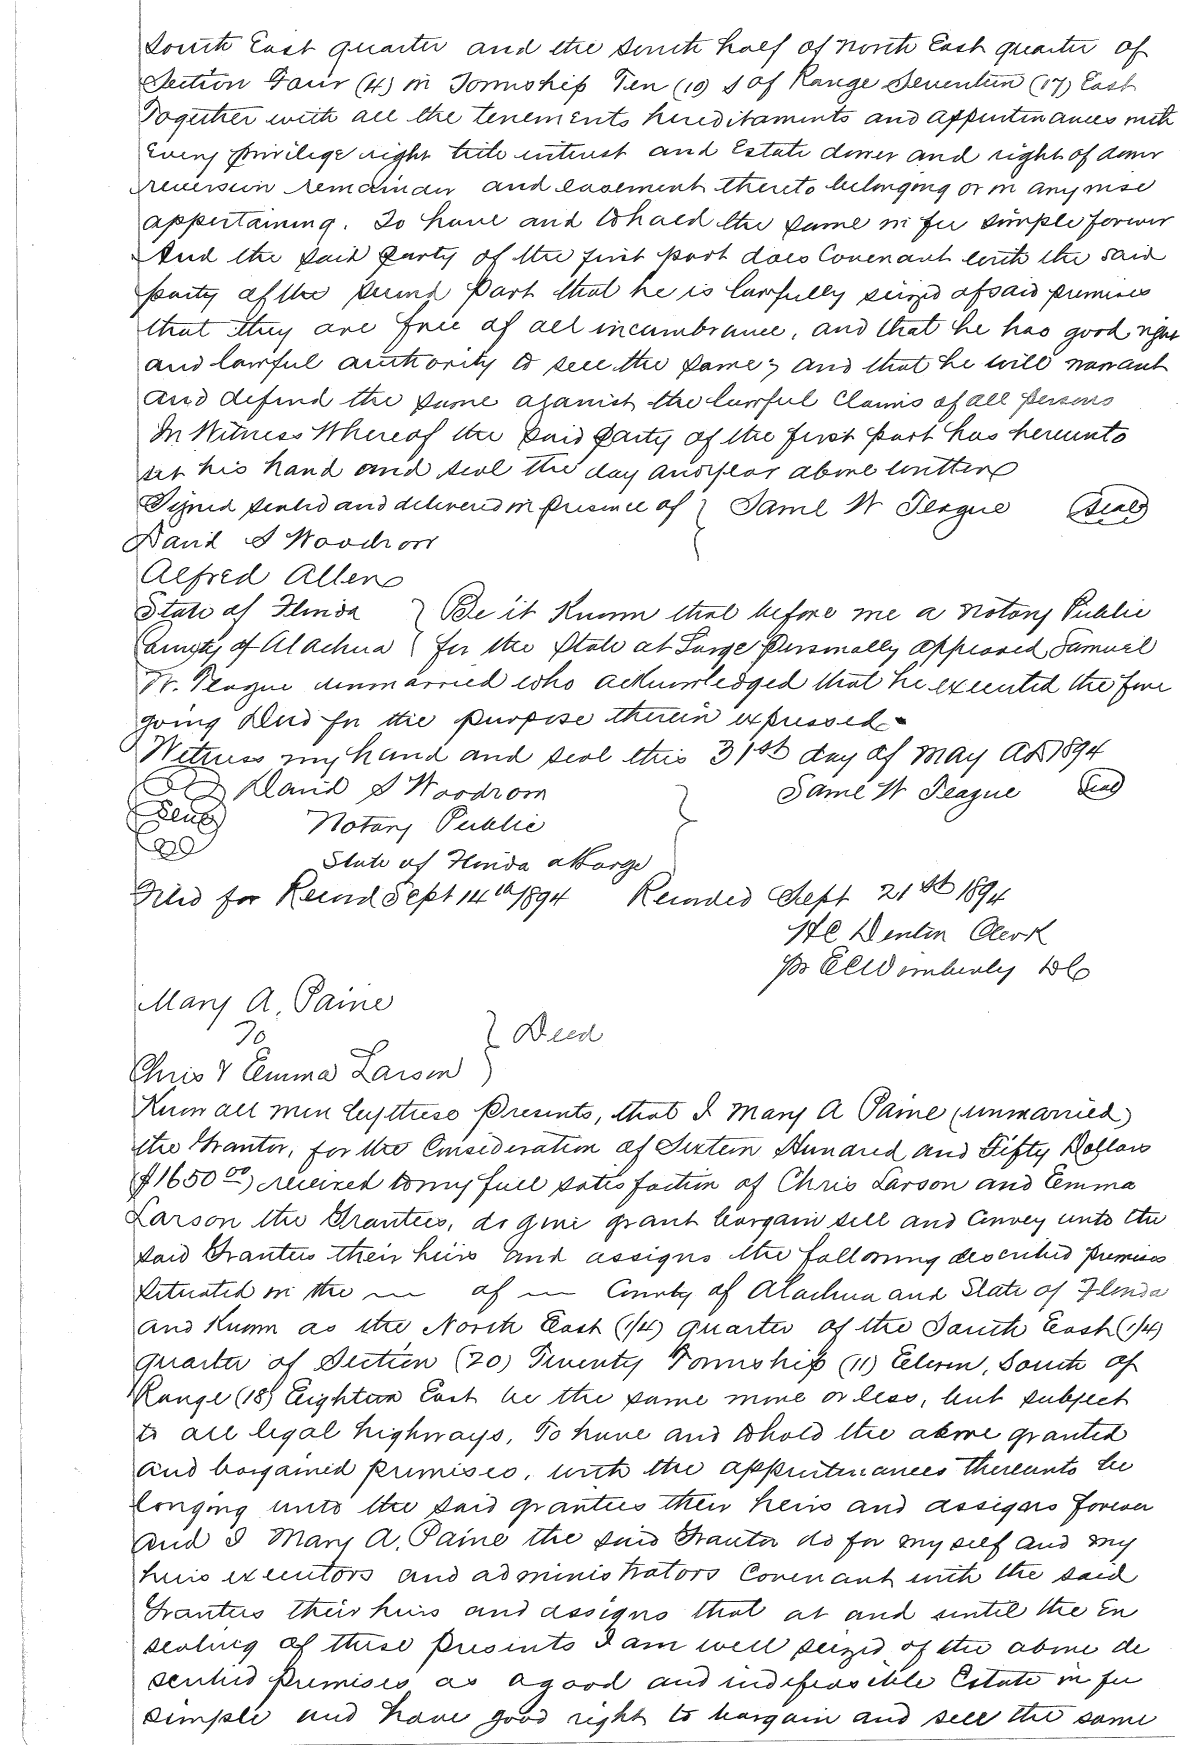 South East quarter and the South half of North East quarter of
Section Four (4) in Township Ten (10) S of Range Seventeen (17) East
Together with all the tenements hereditaments and appurtenances with
Every privilege right title interest and Estate dower and right of dower
reversion remainder and easement thereto belonging or in any wise
appertaining. To have and to hold the same in fee simple forever
And the said party of the first part does Covenant with the said
party of the second part that he is lawfully seized of said premises
that they are free of all incumbrance, and that he has good right
and lawful authority to sell the same; and that he will warrant
and defend the same against the lawful Claims of all persons
In Witness Whereof the said party of the first part has hereunto
set his hand and seal the day and year above written
Signed sealed and delivered in presence of } Saml W Teague (Seal)
David S Woodrow
Alfred Allen
State of Florida } Be it Known that before me a Notary Public
County of Alachua } for the State at Large personally appeared Samuel
W. Teague unmarried who acknowledged that he executed the fore
going Deed for the purpose therein expressed.
Witness my hand and seal this 31st day of May AD 1894
David S Woodrow } Saml W Teague (Seal)
(Seal) Notary Public
State of Florida at Large
Filed for Record Sept 14th 1894 Recorded Sept 21st 1894
HC Denton Clerk
pr E C Wimberly DC
Mary A. Paine
To } Deed
Chris & Emma Larson
Know all men by these Presents, that I Mary A Paine (unmarried)
the Grantor, for the Consideration of Sixteen Hundred and Fifty Dollars
($1650.00) received to my full satisfaction of Chris Larson and Emma
Larson the Grantees, do give grant bargain sell and Convey unto the
said Grantees their heirs and assigns the following described premises
situated in the — of — County of Alachua and State of Florida
and Known as the North East (1/4) quarter of the South East (1/4)
quarter of Section (20) Twenty Township (11) Eleven, South of
Range (18) Eighteen East be the same more or less, but subject
to all legal highways, To have and to hold the above granted
and bargained premises, with the appurtenances thereunto be
longing unto the said grantees their heirs and assigns forever
and I Mary A. Paine the said Grantor do for my self and my
heirs executors and administrators Covenant with the said
Grantees their heirs and assigns that at and until the En
sealing of these presents I am well seized of the above de
scribed premises as a good and indefeasible Estate in fee
simple and have good right to bargain and sell the same